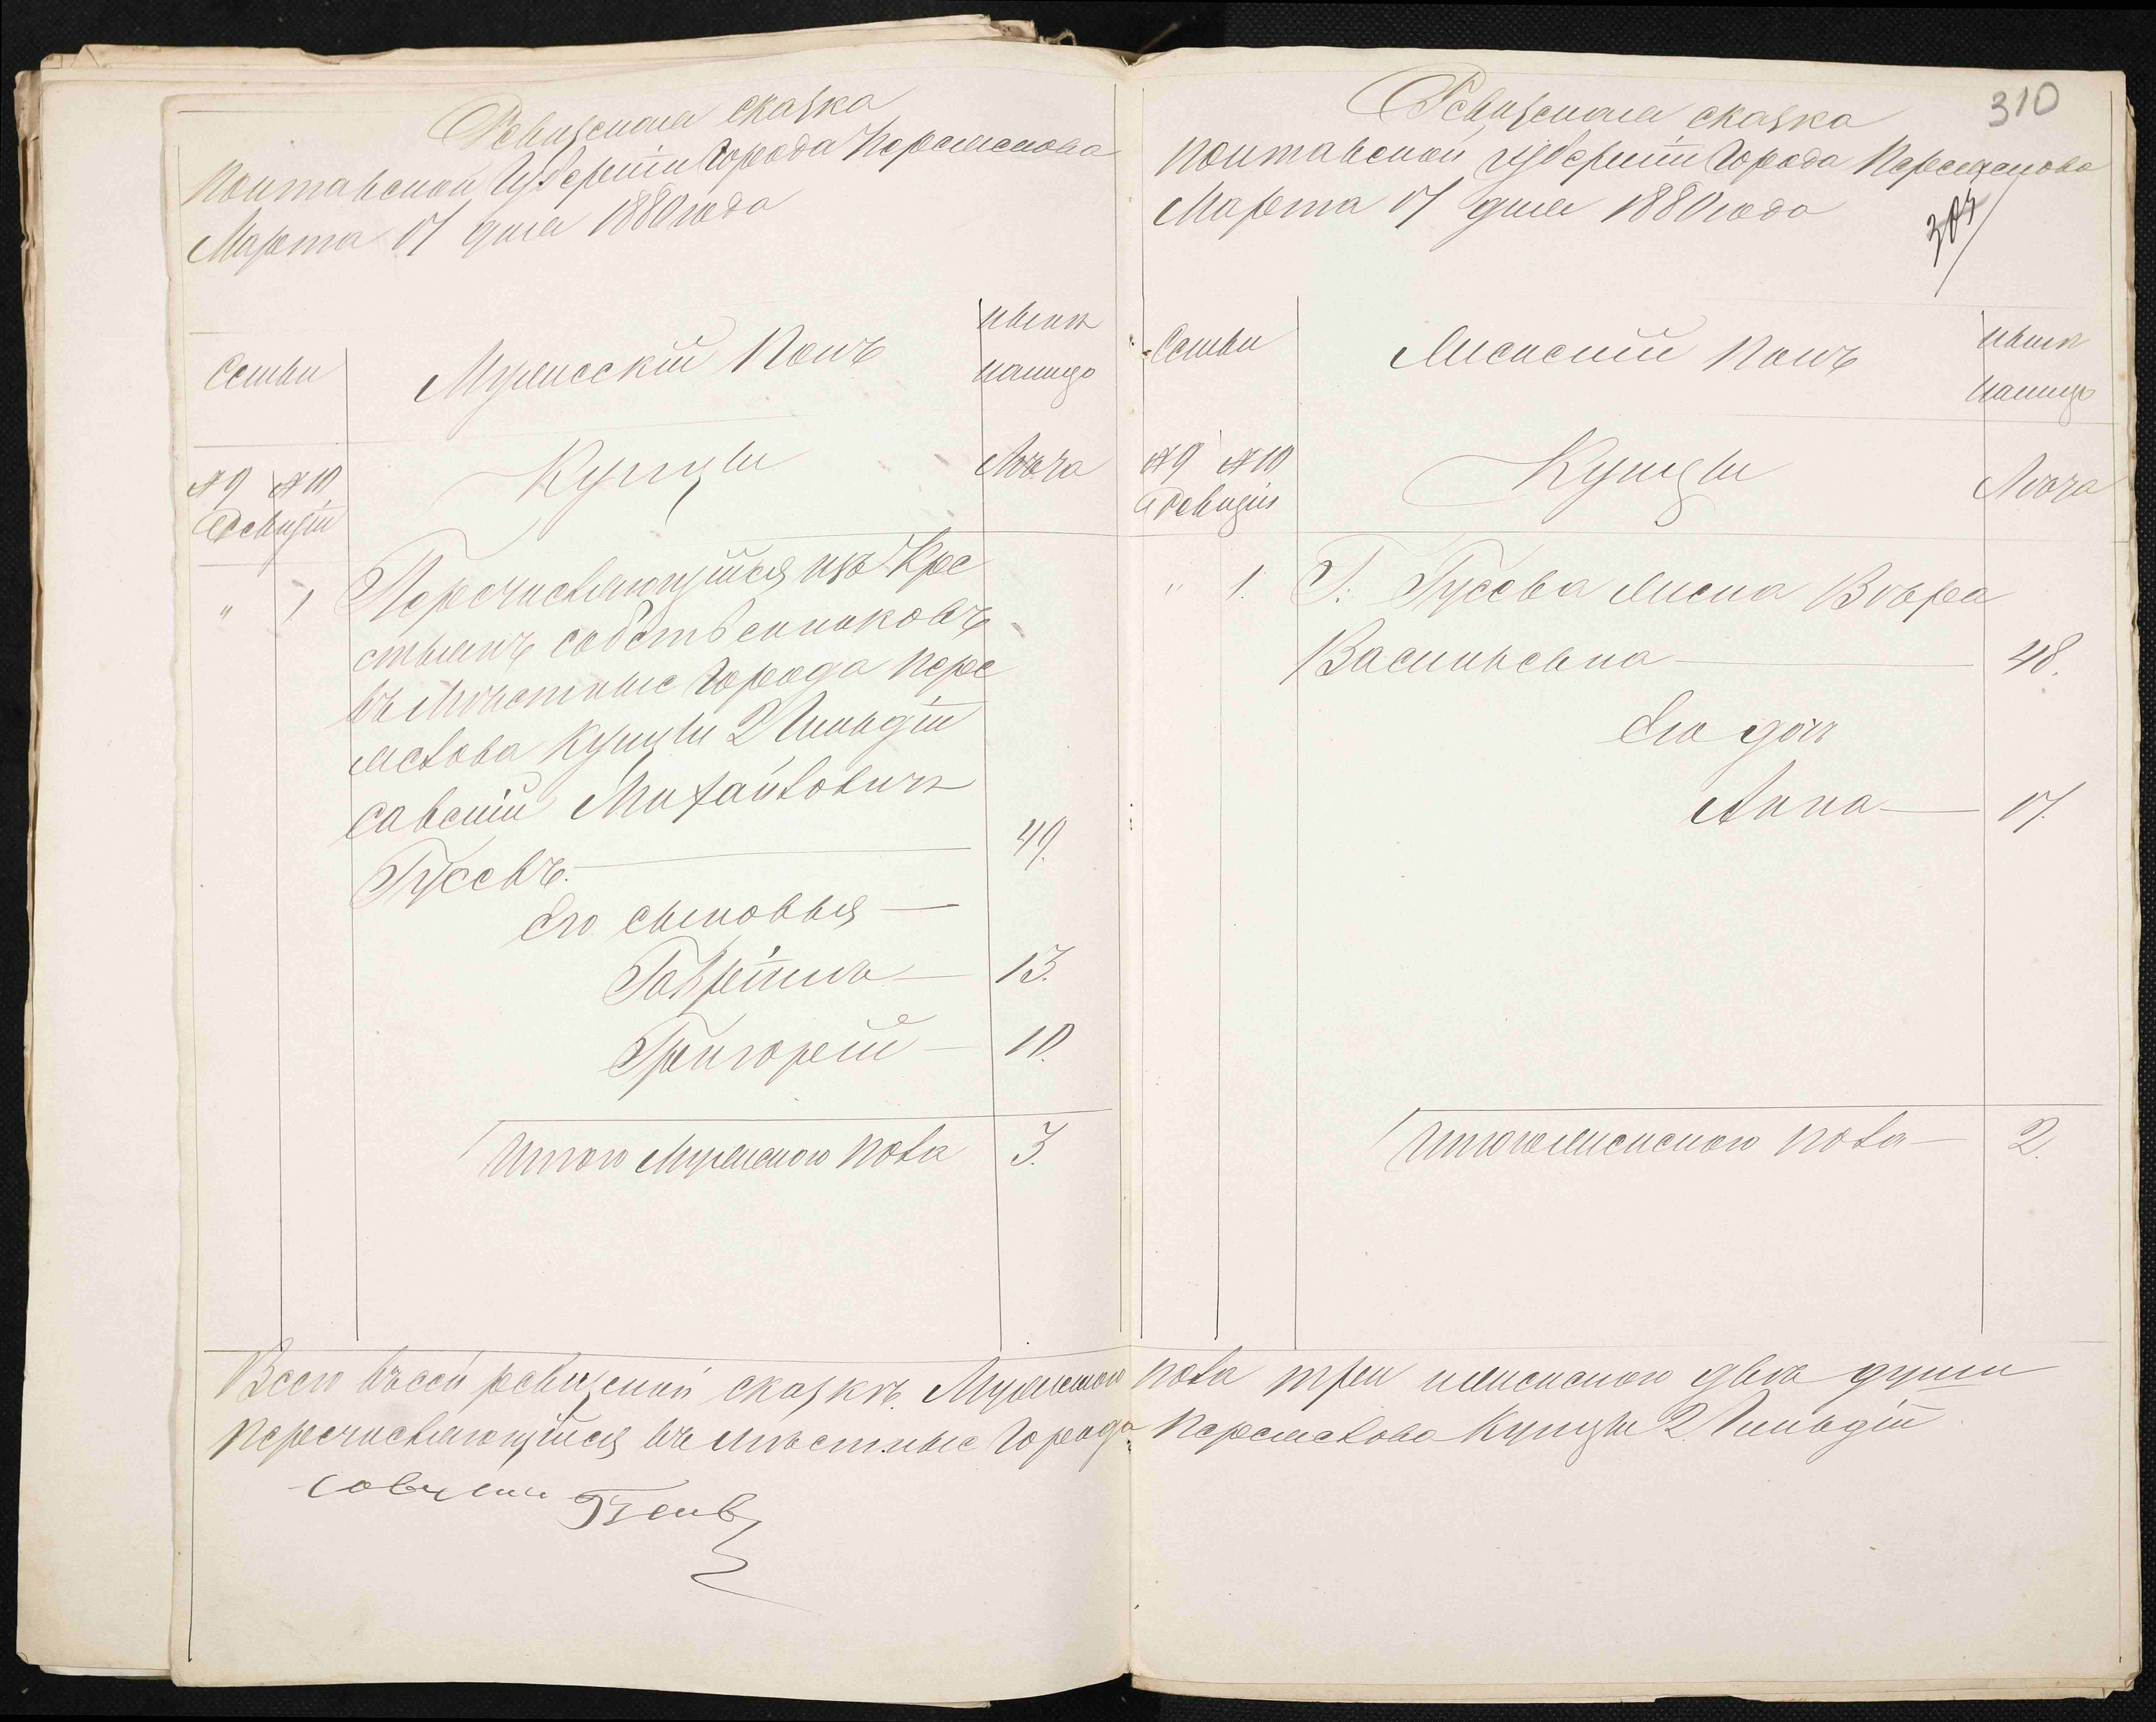 Ревизская сказка
Полтавской Губерніи Города Переяслова
Марта 17 дня 1880 года
Семьи
Мужесскій Полъ
нынѣ
налицо
№9 №10
Ревизіи
Купцы
Лѣта
" 1 Перечисляющійся изъ Крес
стьянъ собственниковъ
въ Мѣстные Города Пере
яслова Купцы 2 Гильдіи
Савелій Михайловичъ
Гусевъ. 49.
Его сыновья
Гавріилъ 13.
Григорій 10.
Итого Мужеского пола 3.
310
Ревизская сказка
Полтавской Губерніи Города Переяслова
Марта 17 дня 1880 года
305
Семьи
Женскій Полъ
нынѣ
налицо
№9 №10
Ревизіи
Купцы
Лѣта
" 1. Г. Гусева жена Вѣра
Васильевна 48.
Его дочь
Анна 17.
Итого женского пола 2.
Всего въ сей ревизской сказкѣ Мужеского пола три и женского двѣ души
Перечисляющійся въ Мѣстные Города Переяслова Купцы 2 Гильдіи
Савелий Гусев